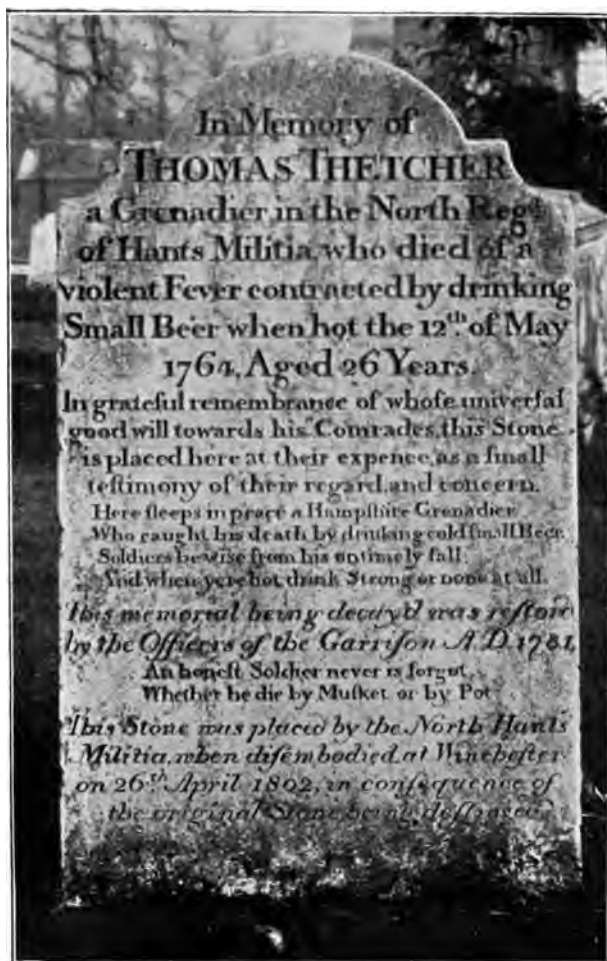 In Memory of
THOMAS THETCHER
a Grenadier in the North Regt.
of Hants Militia, who died of a
violent Fever contracted by drinking
Small Beer when hot the 12th. of May
1764, Aged 26 Years.
In grateful remembrance of whoſe univerſal
good will towards his Comrades, this Stone
is placed here at their expence, as a ſmall
teſtimony of their regard and concern.
Here ſleeps in peace a Hampſhire Grenadier,
Who caught his death by drinking cold ſmall Beer,
Soldiers be wise from his untimely fall
And when yere hot drink Strong or none at all.
This memorial being decay'd was reſtor'd
by the Officers of the Garriſon A.D. 1781,
An honeſt Soldier never is forgot
Whether he die by Muſket or by Pot
This Stone was placed by the North Hants
Militia, when diſembodied at Wincheſter
on 26th. April 1802, in conſequence of
the original Stone being deſtroyed